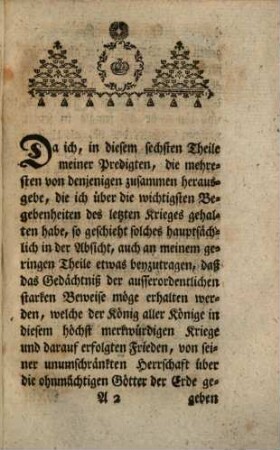 Da ich, in diesem sechsten Theile
meiner Predigten, die mehre-
sten von denjenigen zusammen heraus-
gebe, die ich über die wichtigsten Be-
gebenheiten des letzten Krieges gehal-
ten habe, so geschieht solches hauptsäch-
lich in der Absicht, auch an meinem ge-
ringen Theile etwas beyzutragen, daß
das Gedächtniß der ausserordentlichen
starken Beweise möge erhalten wer-
den, welche der König aller Könige in
diesem höchst merkwürdigen Kriege
und darauf erfolgten Frieden, von sei-
ner unumschränkten Herrschaft über
die ohnmächtigen Götter der Erde ge-
A 2 geben